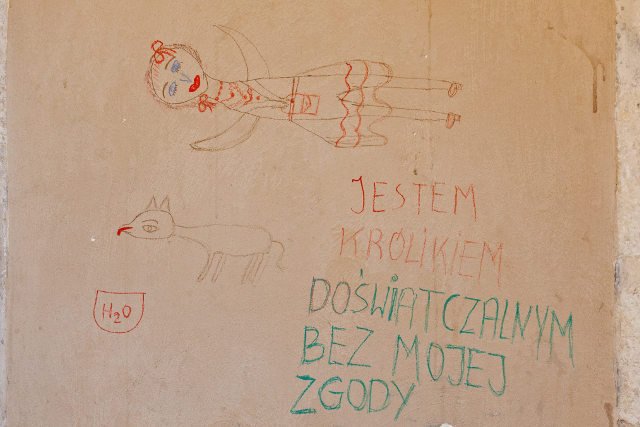 JESTEM
KRÓLIKIEM
H2O
DOŚWIATCZALNYM
BEZ MOJEJ
ZGODY